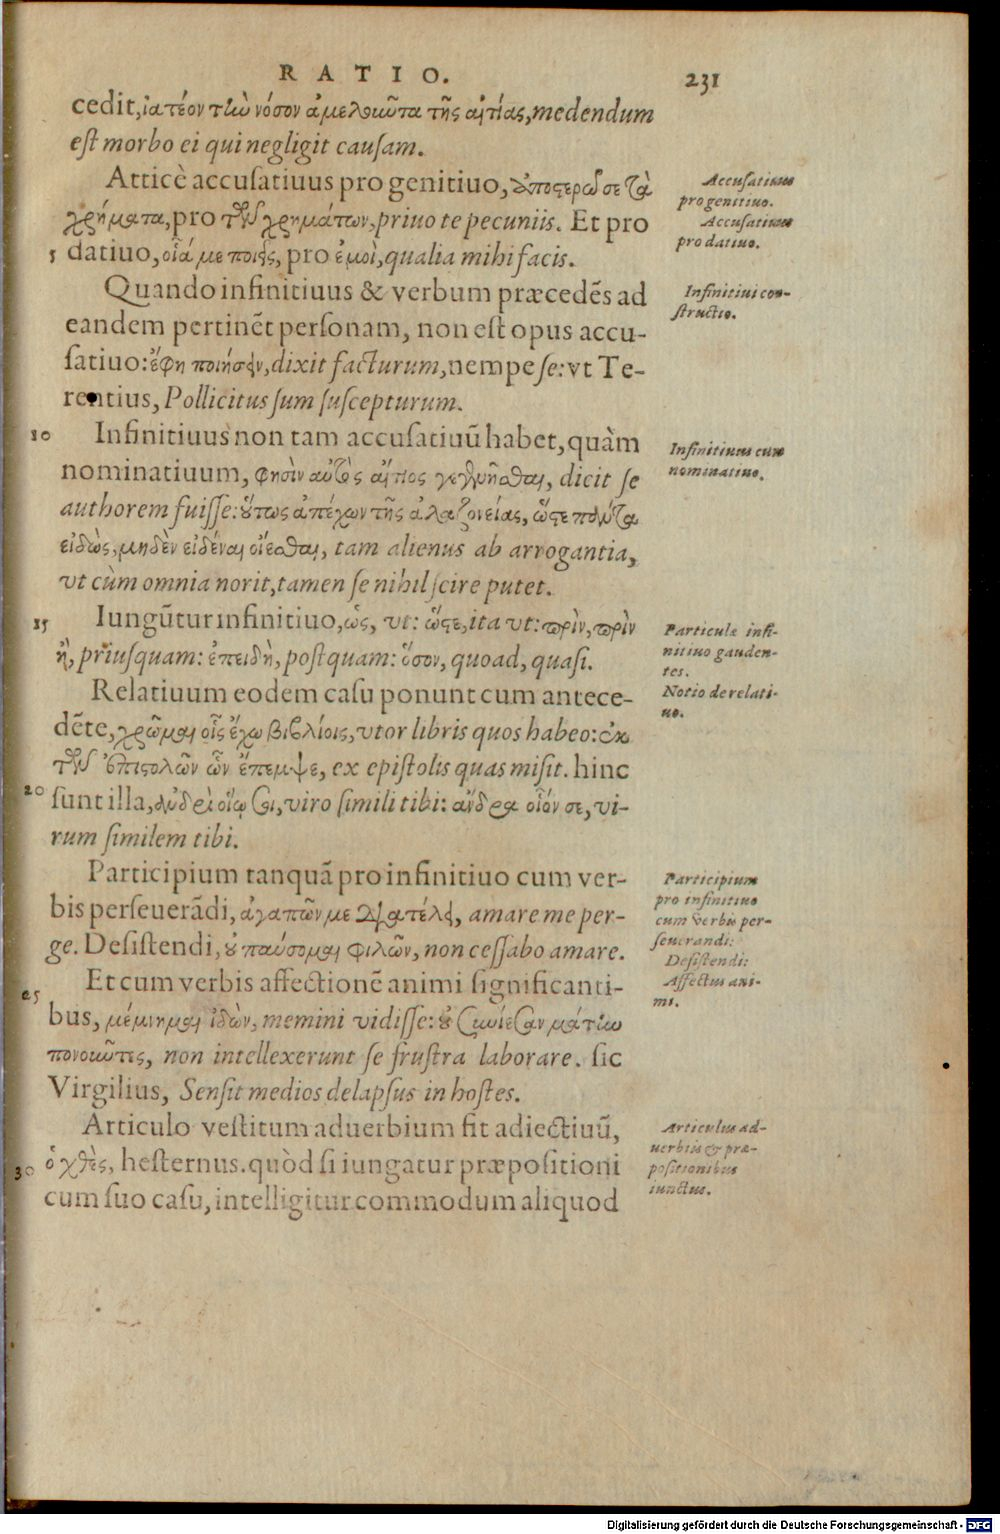 RATIO. 231
cedit, ἰατέον τὴν νόσον ἀμελοῦντα τῆς αἰτίας, medendum
est morbo ei qui negligit causam.
Atticè accusatiuus pro genitiuo, ἀποστερῶ σε τὰ
χρήματα, pro τῶν χρημάτων, priuo te pecuniis. Et pro
5 datiuo, οἷά με ποιεῖς, pro ἐμοὶ, qualia mihi facis.
Quando infinitiuus & verbum præcedẽs ad
eandem pertinẽt personam, non est opus accu-
satiuo: ἔφη ποιήσειν, dixit facturum, nempe se: vt Te-
rentius, Pollicitus sum suscepturum.
10 Infinitiuus non tam accusatiuũ habet, quàm
nominatiuum, φησὶν αὐτὸς αἴτιος γεγενῆσθαι, dicit se
authorem fuisse: οὕτως ἀπέχων τῆς ἀλαζονείας, ὥστε πολλὰ
εἰδὼς, μηδὲν εἰδέναι οἴεσθαι, tam alienus ab arrogantia,
vt cùm omnia norit, tamen se nihil scire putet.
15 Iungũtur infinitiuo, ὡς, vt: ὥστε, ita vt: πρὶν, πρὶν
ἢ, priusquam: ἐπειδὴ, postquam: ὅσον, quoad, quasi.
Relatiuum eodem casu ponunt cum antece-
dẽte, χρῶμαι οἷς ἔχω βιβλίοις, vtor libris quos habeo: ἐκ
τῶν ἐπιστολῶν ὧν ἔπεμψε, ex epistolis quas misit. hinc
20 sunt illa, ἀνδρὶ οἵῳ σοι, viro simili tibi: ἄνδρα οἷόν σε, vi-
rum similem tibi.
Participium tanquã pro infinitiuo cum ver-
bis perseuerãdi, ἀγαπῶν με διατέλει, amare me per-
ge. Desistendi, οὐ παύσομαι φιλῶν, non cessabo amare.
25 Et cum verbis affectionẽ animi significanti-
bus, μέμνημαι ἰδὼν, memini vidisse: οὐ συνίεσαν μάτην
πονοῦντες, non intellexerunt se frustra laborare. sic
Virgilius, Sensit medios delapsus in hostes.
Articulo vestitum aduerbium fit adiectiuũ,
30 ὁ χθὲς, hesternus. quòd si iungatur præpositioni
cum suo casu, intelligitur commodum aliquod
Accusatiuus
pro genitiuo.
Accusatiuus
pro datiuo.
Infinitiui con-
structio.
Infinitiuus cum
nominatiuo.
Particulæ infi-
nitiuo gauden-
tes.
Notio de relati-
uo.
Participium
pro infinitiuo
cum verbis per-
seuerandi:
Desistendi:
Affectus ani-
mi.
Articulus ad-
uerbiis & præ-
positionibus
iunctus.
Digitalisierung gefördert durch die Deutsche Forschungsgemeinschaft - DFG